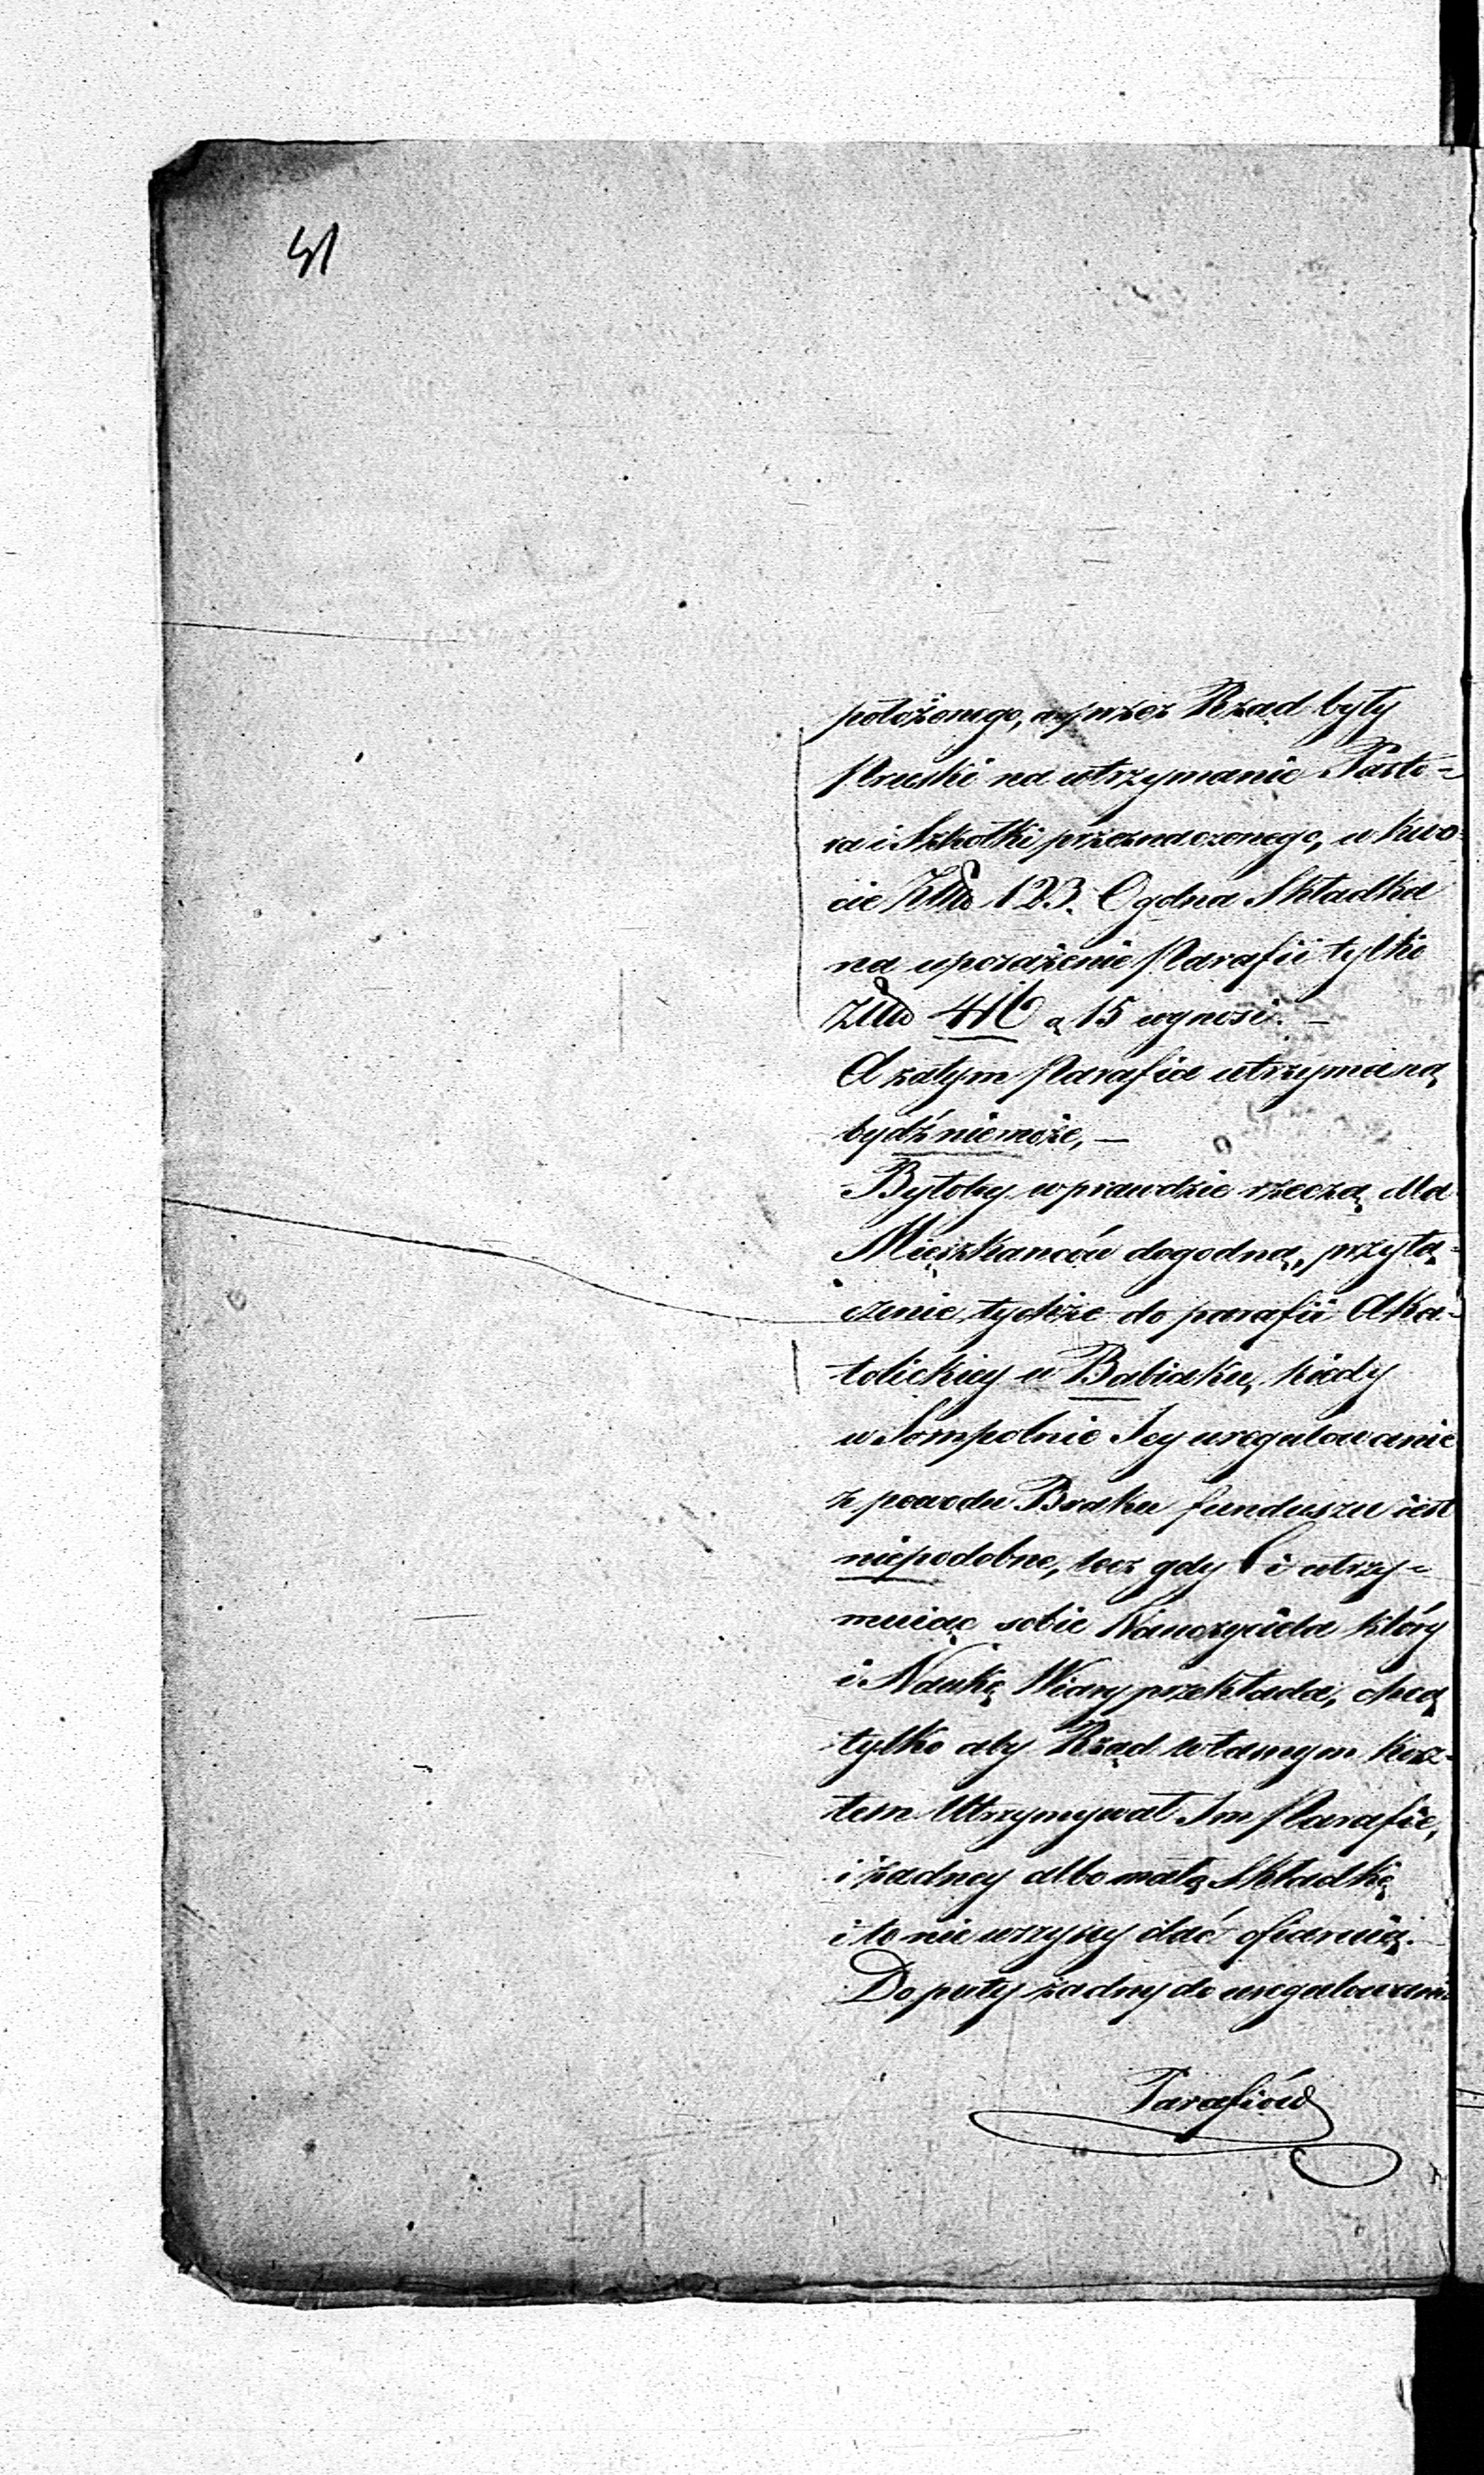 51
położonego, a przez Rząd były
Pruski na utrzymanie Pasto=
ra i Szkołki przeznaczonego, w kwo=
cie 123. Ogólna Składka
na uposażenie Parafii tylko
416 a 15 wynosi. —
A zatym Parafia utrzymaną
bydź niemoże, —
Byłoby wprawdzie rzeczą dla
Mięszkanców dogodną, przyłą=
czenie tychże do parafii Aka=
tolickiey w Babiaku, kiedy
w Sompolnie Jey uregulowanie
z powodu Braku funduszu iest
niepodobne, lecz gdy Ci utrzy=
muiąc sobie Nauczyciela który
i Naukę Wiary przekłada, chcą
tylko aby Rząd własnym kosz=
tem Utrzymywał Im Parafie,
i żadney albo małą Składkę
i to nie wszyscy dać ofiaruią.
Do puty żadny do uregulowania
Parafiów